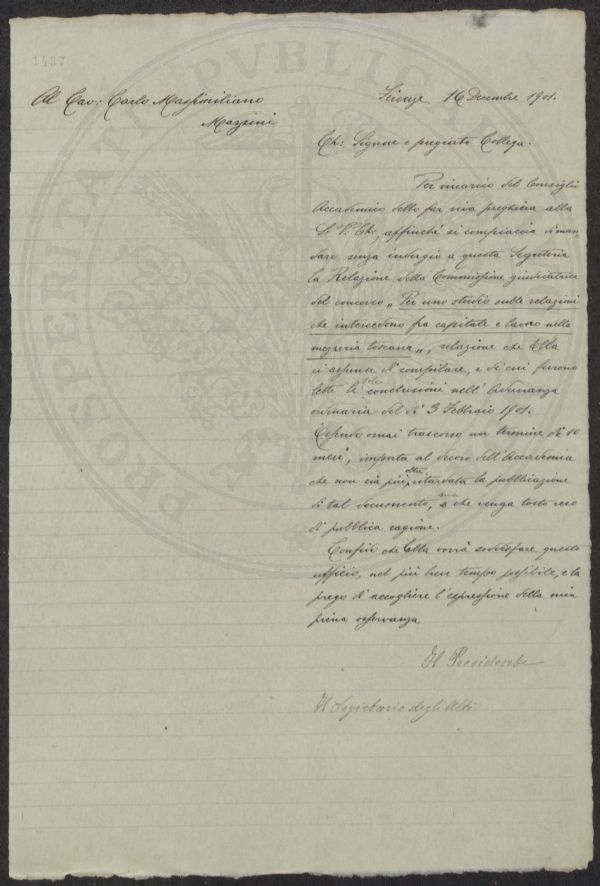 1437
Al Cav: Carlo Massimiliano
Mazzini
Firenze 16 Decembre 1901.
Ch: Signore e pregiato Collega.
Per incarico del Consiglio
Accademico debbo far viva preghiera alla
S. V. Ch:, affinché si compiaccia di man-
dare senza indugio a questa Segreteria
la Relazione della Commissione giudicatrice
del concorso "Per uno studio sulle relazioni
che intercedono fra capitale e lavoro nella
mezzeria toscana", relazione che Ella
si assunse di compilare, e di cui furono
lette le sole conclusioni nell'Adunanza
ordinaria del dì 3 Febbraio 1901.
Essendo omai trascorso un termine di 10
mesi, importa al decoro dell'Accademia
che non sia più oltre ritardata la pubblicazione
di tal documento, ma che venga tosto reso
di pubblica ragione.
Confido che Ella vorrà soddisfare questo
ufficio, nel più breve tempo possibile, e la
prego d'accogliere l'espressione della mia
piena osservanza
Il Presidente
Il Segretario degli Atti